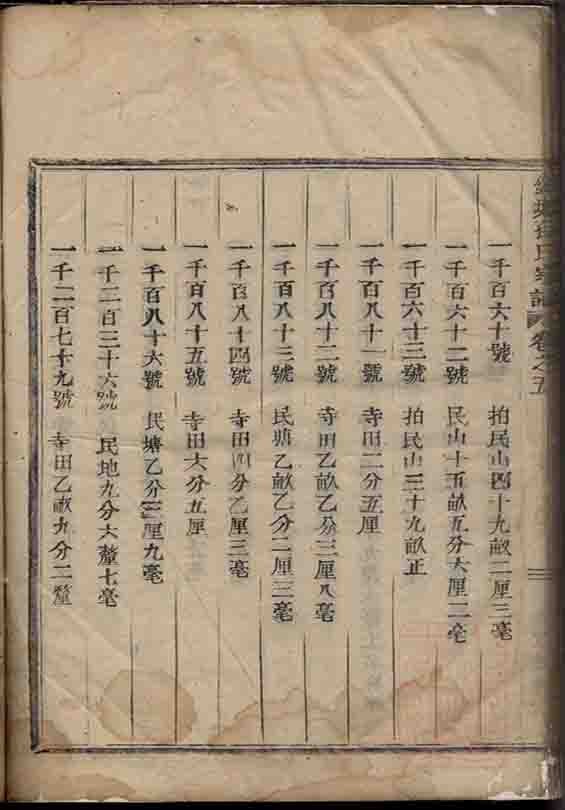 氏宗譜 卷之五
一千百六十號 拍民山四十九畝二厘三毫
一千百六十二號 民山十五畝五分六厘二毫
一千百六十三號 拍民山三十九畝正
一千百八十一號 寺田二分五厘
一千百八十二號 寺田乙畝乙分三厘八毫
一千百八十三號 民塘乙畝乙分二厘三毫
一千百八十四號 寺田四分乙厘三毫
一千百八十五號 寺田六分五厘
一千百八十六號 民塘乙分三厘九毫
一千二百三十六號 民地九分六釐七毫
一千二百七十九號 寺田乙畝九分二釐